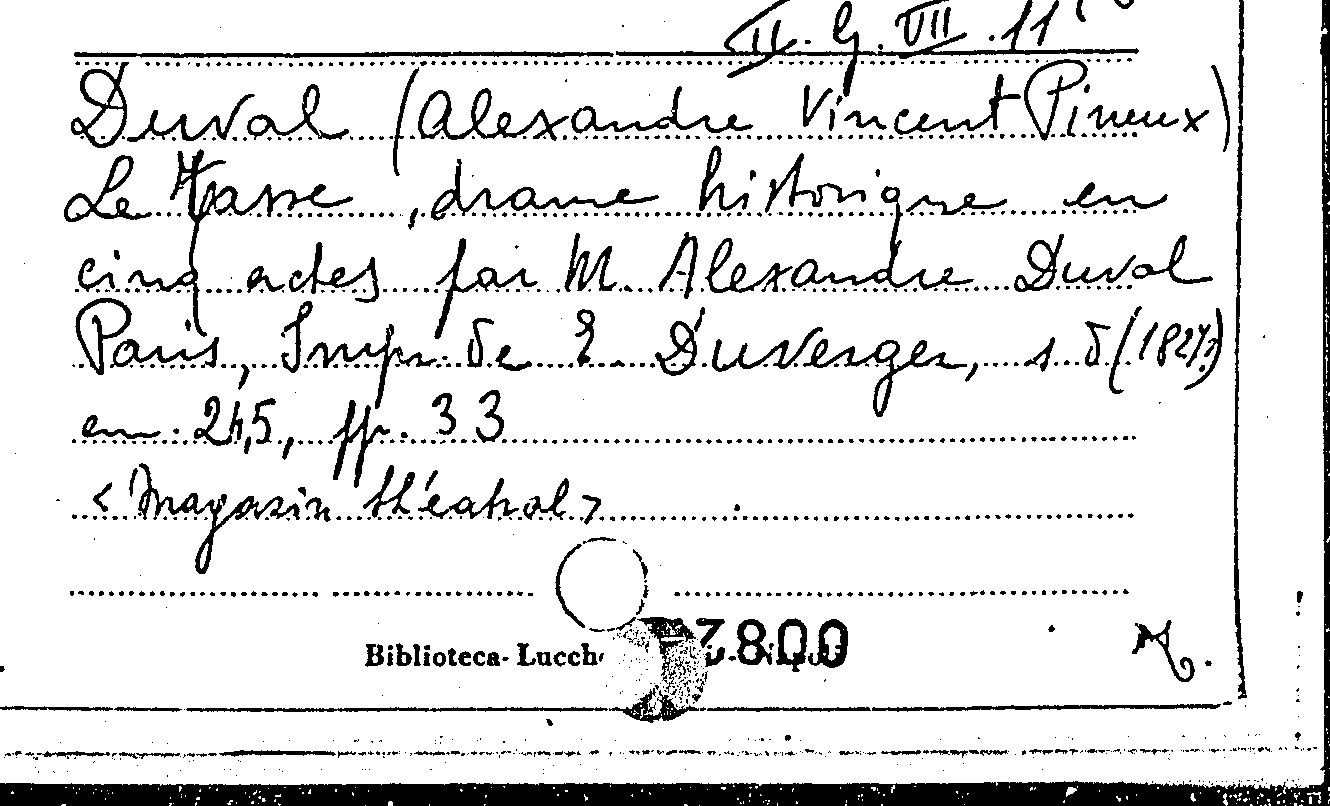 II. G. VII. 11
Duval (Alexandre Vincent Pineux)
Le Tasse, drame historique en
cinq actes par M. Alexandre Duval
Paris, Impr. de E. Duverger, s. d (182?)
cm. 24,5, pp. 33
<Magasin théatral>
7800
Biblioteca- Lucch